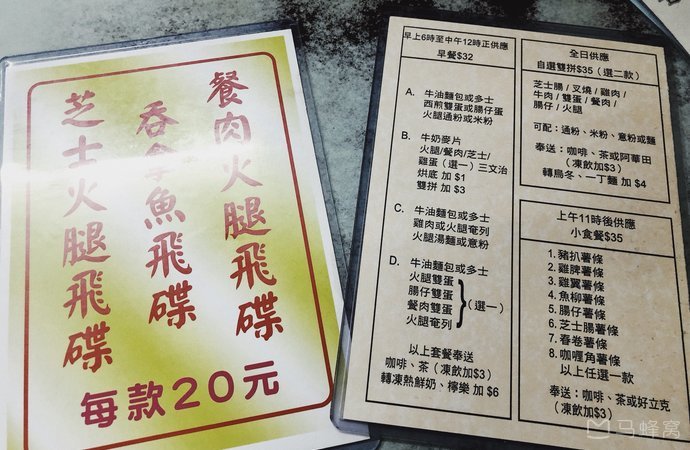 餐肉火腿飛碟
吞拿魚飛碟
芝士火腿飛碟
每款20元
早上6時至中午12時正供應
早餐$32
A. 牛油麵包或多士
西煎雙蛋或腸仔蛋
火腿通粉或米粉
B. 牛奶麥片
火腿/餐肉/芝士/
雞蛋（選一）三文治
烘底 加 $1
雙拼 加 $3
C. 牛油麵包或多士
雞肉或火腿奄列
火腿湯麵或意粉
D. 牛油麵包或多士
火腿雙蛋
腸仔雙蛋
餐肉雙蛋
火腿奄列
（選一）
以上套餐奉送
咖啡、茶（凍飲加$3）
轉凍熱鮮奶、檸樂 加 $6
全日供應
自選雙拼$35（選二款）
芝士腸 / 叉燒 / 雞肉 /
牛肉 / 雙蛋 / 餐肉 /
腸仔 / 火腿
可配：通粉、米粉、意粉或麵
奉送：咖啡、茶或阿華田
（凍飲加$3）
轉烏冬、一丁麵 加 $4
上午11時後供應
小食餐$35
1. 豬扒薯條
2. 雞脾薯條
3. 雞翼薯條
4. 魚柳薯條
5. 腸仔薯條
6. 芝士腸薯條
7. 春卷薯條
8. 咖喱角薯條
以上任選一款
奉送：咖啡、茶或好立克
（凍飲加$3）
马蜂窝